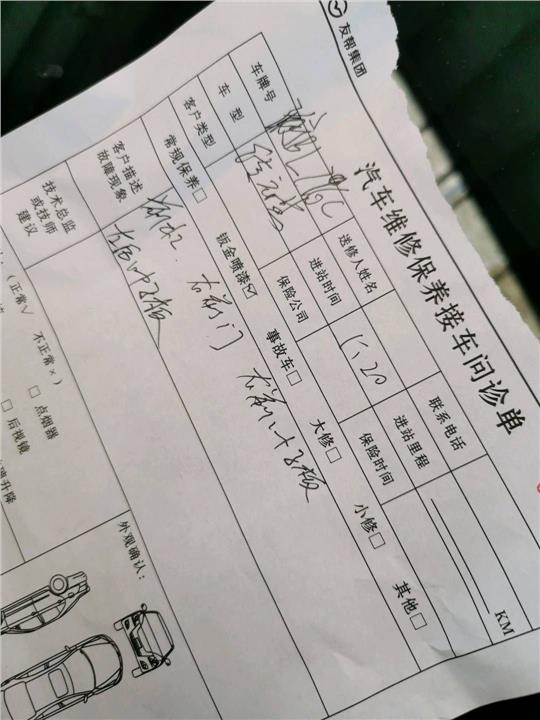 友帮集团
汽车维修保养接车问诊单
车牌号 送修人姓名 联系电话
车 型 进站时间 15:20 进站里程 KM
客户类型 保险公司 保险时间
常规保养□ 钣金喷漆☑ 事故车□ 大修□ 小修□ 其他□
客户描述 右前门 右前叶子板
故障现象 右后叶子板
技术总监
或技师
建议
(正常√ 不正常×) 外观确认:
□ 点烟器
□ 后视镜
升降